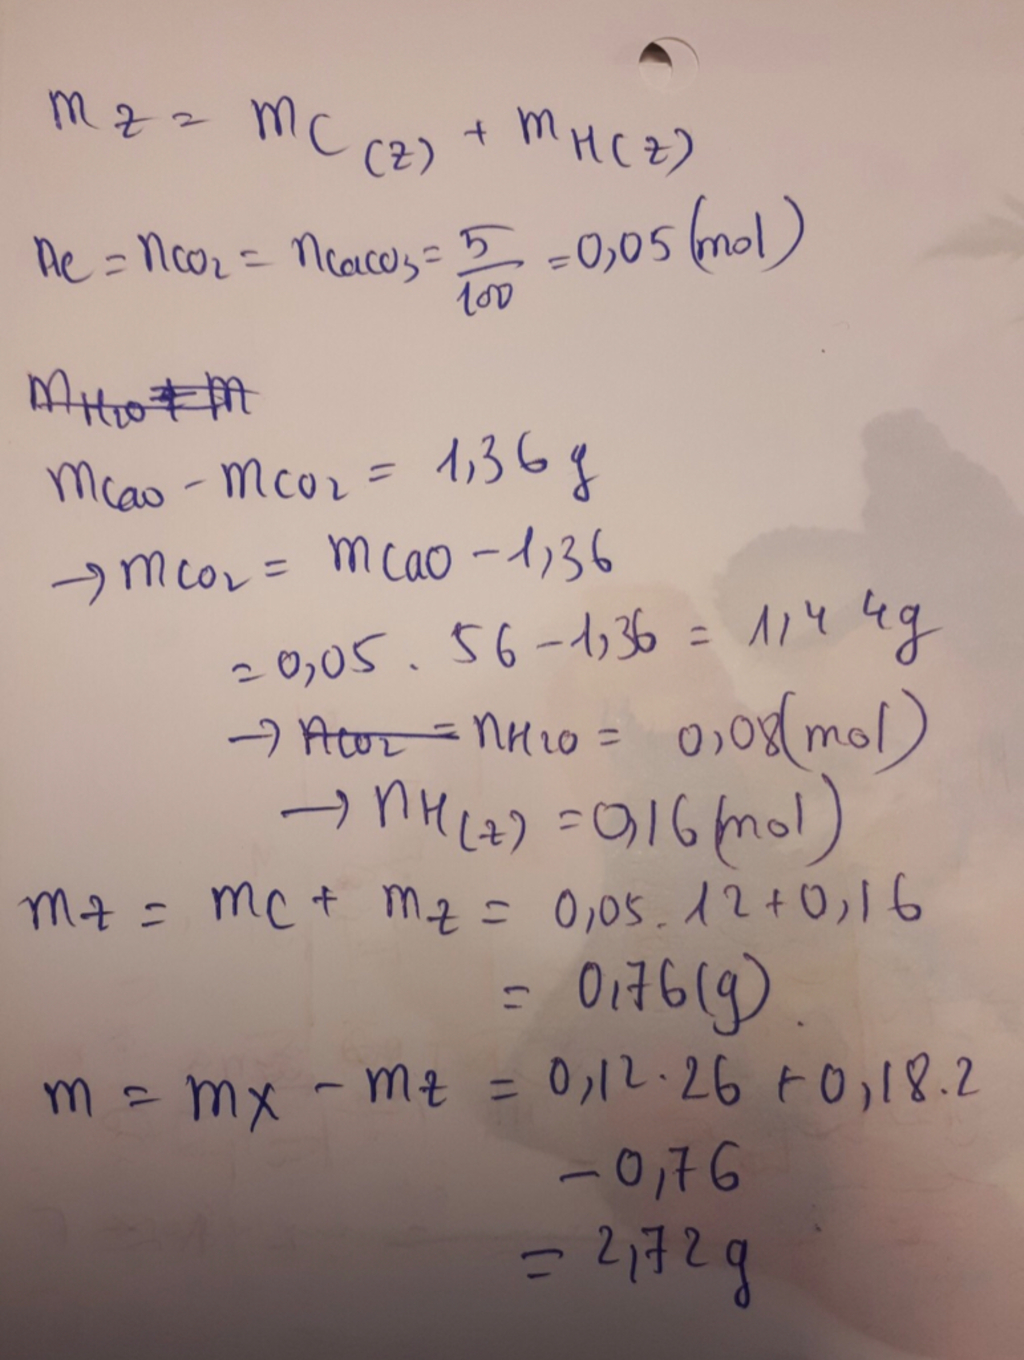 mZ = mC(Z) + mH(Z)
nC = nCO2 = nCaCO3 = 5/100 = 0,05 (mol)
mH2O = m
mCaO - mCO2 = 1,36 g
→ mCO2 = mCaO - 1,36
= 0,05 . 56 - 1,36 = 1,44g
→ nCO2 = nH2O = 0,08 (mol)
→ nH(Z) = 0,16 (mol)
mZ = mC + mZ = 0,05.12 + 0,16
= 0,76 (g).
m = mX - mZ = 0,12.26 + 0,18.2
- 0,76
= 2,72 g